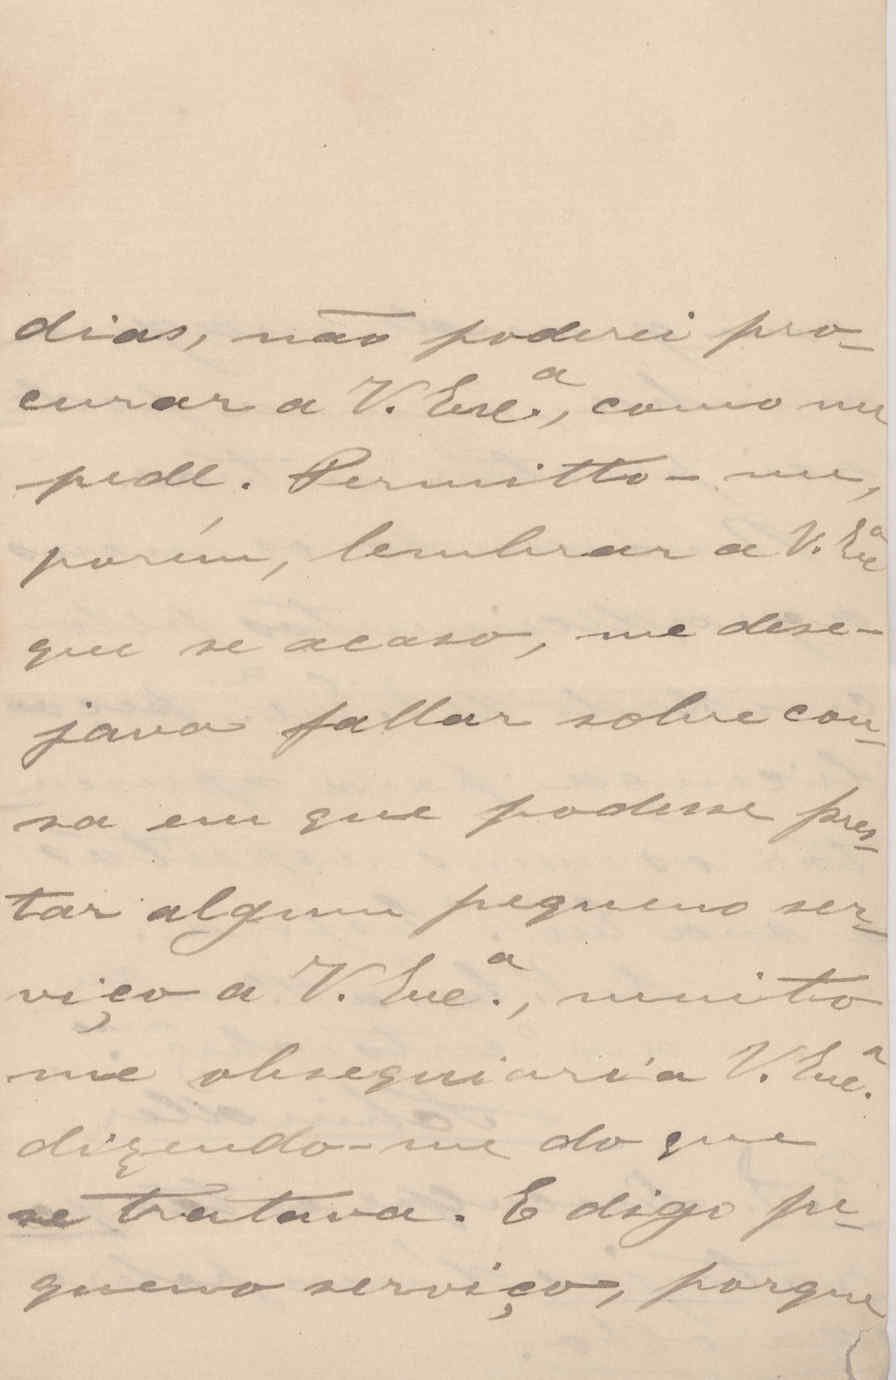 dias, não poderei pro-
curar a V. Exc.ª, como me
pede. Permitto-me,
porém, lembrar a V. Excª
que se acaso, me dese-
java fallar sobre cou-
sa em que podesse pres-
tar algum pequeno ser-
viço a V. Exc.ª, muito
me obsequiaria V. Exc.ª
dizendo-me do que
se tratava. E digo pe-
queno serviço, porque